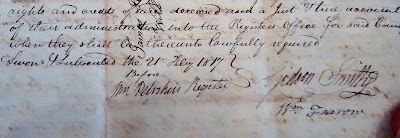 rights and credits of said deceased and a Just & true account
of their administration into the Registers Office for said Coun
when they shall be thereunto lawfully required
Sworn & subscribed the 21st
1817
Before
Register
Gideon Smith
Wm